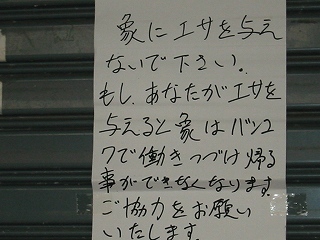 象にエサを与え
ないで下さい。
もし、あなたがエサを
与えると象はバンコ
クで働きつづけ帰る
事ができなくなります
ご協力をお願い
いたします